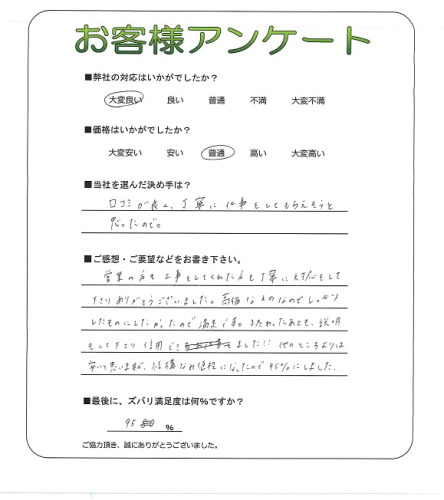 お客様アンケート
■弊社の対応はいかがでしたか?
大変良い 良い 普通 不満 大変不満
■価格はいかがでしたか?
大変安い 安い 普通 高い 大変高い
■当社を選んだ決め手は?
口コミが良く、丁寧に仕事をしてもらえそうと
思ったので。
■ご感想・ご要望などをお書き下さい。
営業の方も工事をしてくれた方も丁寧に対応をして
下さりありがとうございました。高価なものなのでしっかり
したものにしたかったので満足です。終わったあとも、説明
をして下さり信用できました!! 他のところよりは
安いと思いますが、結構なお値段になったので95%にしました。
■最後に、ズバリ満足度は何%ですか?
95 %
ご協力頂き、誠にありがとうございました。